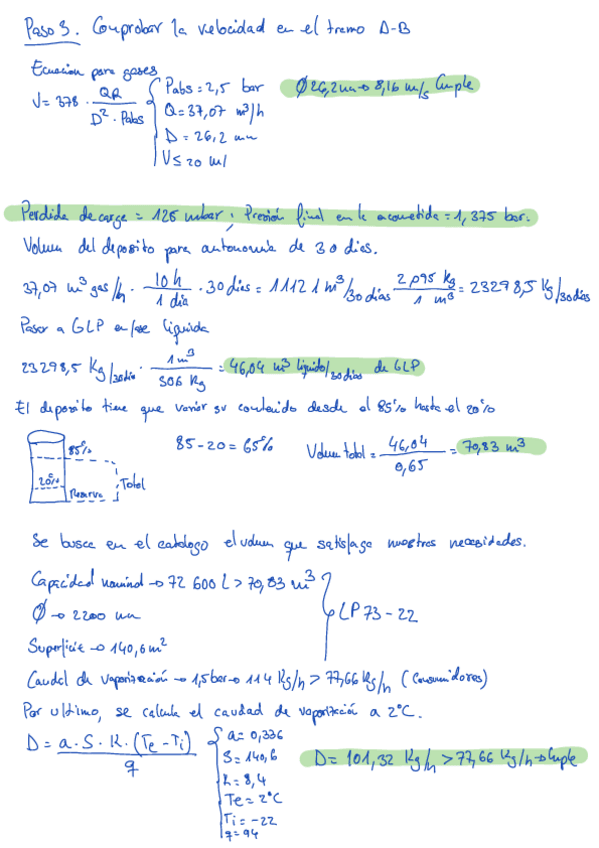 Paso 3. Comprobar la velocidad en el tramo A-B
Ecuacion para gases
V = 378 · QR / D² · Pabs
Pabs = 2,5 bar
Q = 37,07 m³/h
D = 26,2 mm
V ≤ 20 m/
Ø 26,2 mm → 8,16 m/s Cumple
Perdida de carga = 125 mbar ; Presión final en la acometida = 1,375 bar.
Volumen del deposito para autonomía de 30 dias.
37,07 m³ gas/h · 10 h / 1 dia · 30 dias = 11121 m³/30 dias · 2,095 kg / 1 m³ = 23298,5 Kg/30 dias
Pasar a GLP en fase liquida
23298,5 Kg/30 dia · 1 m³ / 506 Kg = 46,04 m³ liquido/30 dias de GLP
El deposito tiene que variar su contenido desde el 85% hasta el 20%
85%
20%
Reserva
Total
85 - 20 = 65%
Volumen total = 46,04 / 0,65 = 70,83 m³
Se busca en el catalogo el volumen que satisfaga nuestras necesidades.
Capacidad nominal → 72 600 L > 70,83 m³
Ø → 2200 mm
LP 73 - 22
Superficie → 140,6 m²
Caudal de vaporización → 1,5 bar → 114 Kg/h > 77,66 Kg/h (Consumidores)
Por ultimo, se calcula el caudad de vaporización a 2°C.
D = a · S · K · (Te - Ti) / q
a = 0,336
S = 140,6
k = 8,4
Te = 2°C
Ti = -22
q = 94
D = 101,32 Kg/h > 77,66 Kg/h → Cumple